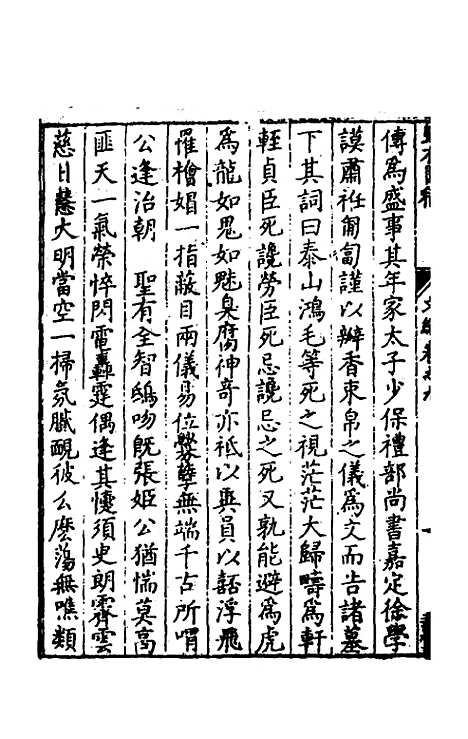 傳爲盛事其年家太子少保禮部尚書嘉定徐學
謨肅袵匍匐謹以瓣香束帛之儀爲文而告諸墓
下其詞曰泰山鴻毛等死之視茫茫大歸疇爲軒
輊貞臣死讒勞臣死忌讒忌之死又孰能避爲虎
爲龍如鬼如魅臭腐神奇亦祗以異員以嚭浮飛
罹檜媢一指蔽目兩儀易位釁孽無端千古所喟
公逢治朝　聖有全智鴟吻旣張姬公猶惴莫高
匪天一氣榮悴閃電轟霆偶逢其懥須臾朗霽雲
慈日慧大明當空一掃氛膩覥彼么麽蕩無噍類